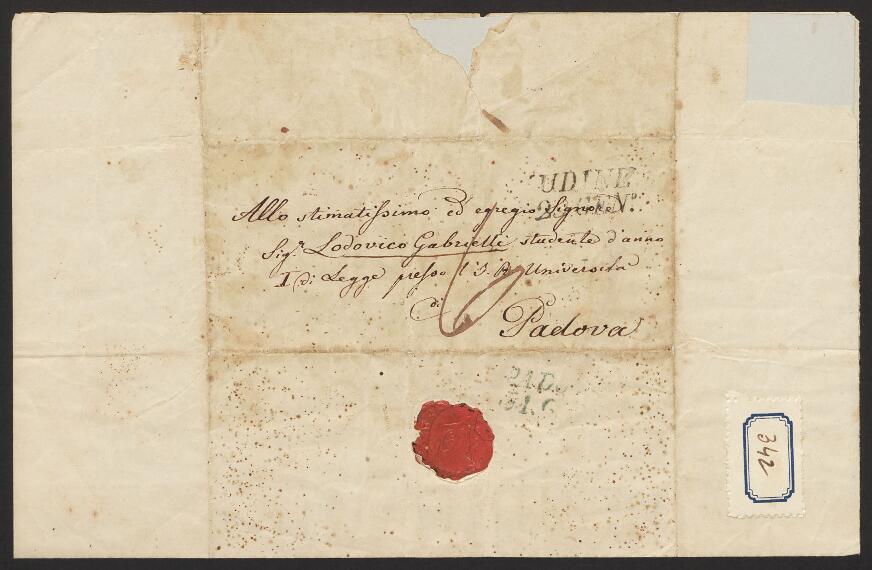 UDINE
GENº
Allo stimatissimo ed egregio Signore
Sigr Lodovico Gabrielli studente d'anno
I di Legge presso l'I. R. Università
di
Padova
6
PAD
342